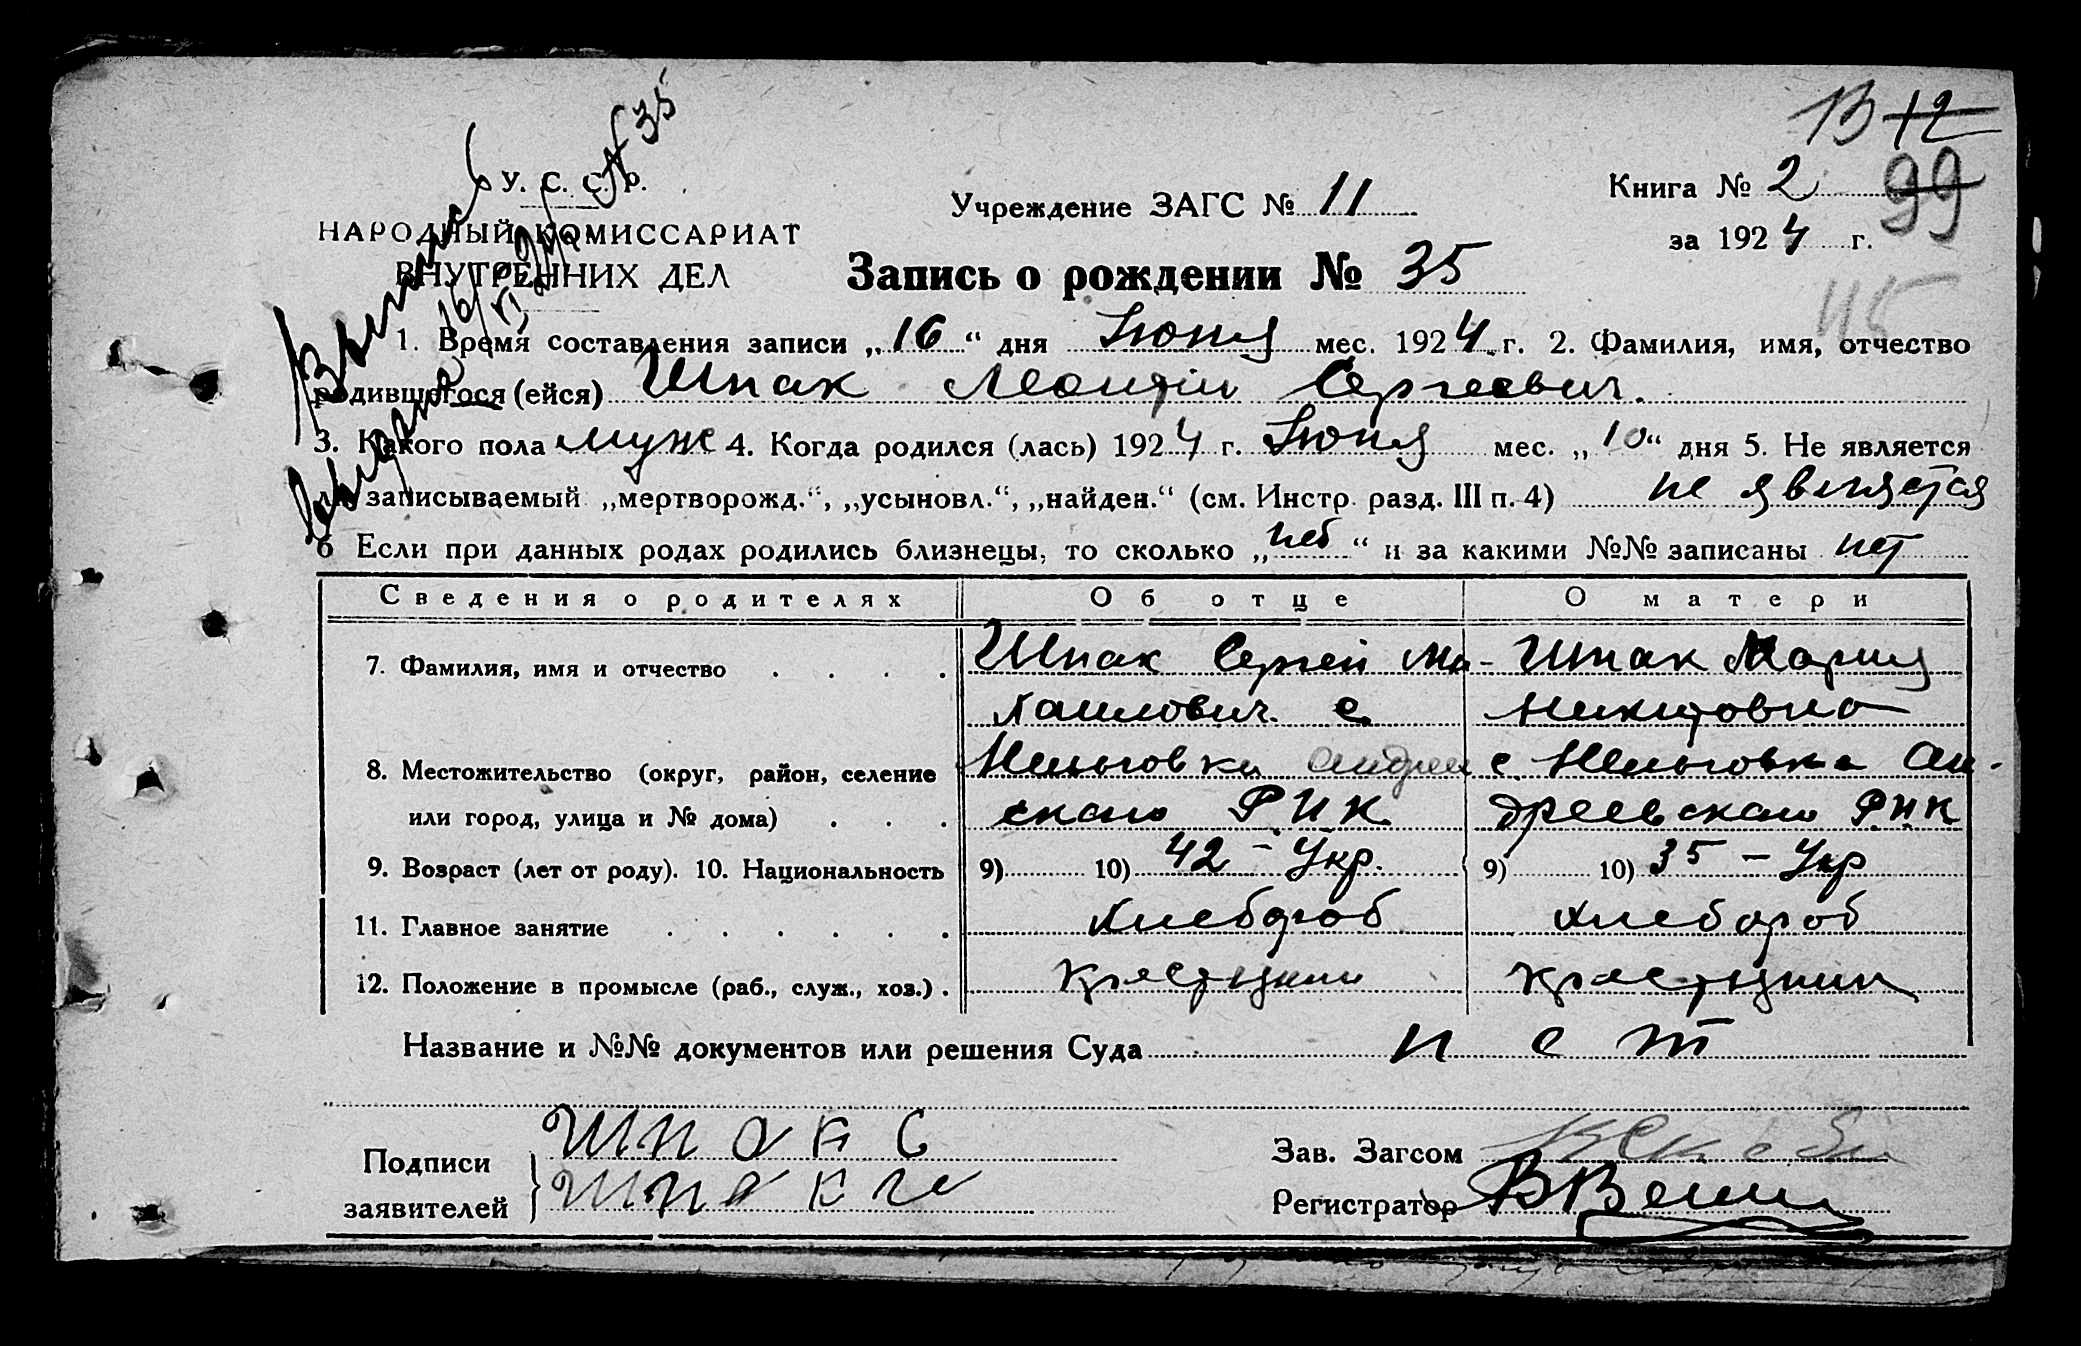 13 12
99
115
У. С. С. Р.
НАРОДНЫЙ КОМИССАРИАТ
ВНУТРЕННИХ ДЕЛ
Выпись
выдана 16/VI 1924 N 35
Учреждение ЗАГС № 11
Книга № 2
за 1924 г.
Запись о рождении № 35
1. Время составления записи „16“ дня Июня мес. 1924 г. 2. Фамилия, имя, отчество
родившегося (ейся) Шпак Леонтий Сергеевич.
3. Какого пола муж 4. Когда родился (лась) 1924 г. Июня мес. „10“ дня 5. Не является
ли записываемый „мертворожд.“, „усыновл.“, „найден.“ (см. Инстр. разд. III п. 4) не является
6 Если при данных родах родились близнецы, то сколько „нет“ и за какими №№ записаны нет
Сведения о родителях Об отце О матери
7. Фамилия, имя и отчество Шпак Сергей Ми- Шпак Мария
хаилович с. Никитовна
8. Местожительство (округ, район, селение с
или город, улица и № дома) РИК дреевскаго РИК
9. Возраст (лет от роду). 10. Национальность 9) 10) 42 - Укр. 9) 10) 35 - Укр
11. Главное занятие Хлебороб хлебороб
12. Положение в промысле (раб., служ., хоз.)
Название и №№ документов или решения Суда нет
Подписи заявителей Шпак С
Шпак
Зав. Загсом
Регистратор